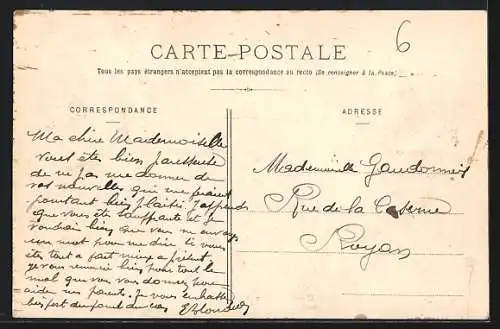 6
CARTE-POSTALE
Tous les pays étrangers n'acceptent pas la correspondance au recto (Se renseigner à la Poste)
CORRESPONDANCE
ADRESSE
Ma chère Mademoiselle
vous êtes bien paresseuse
de ne pas me donner de
vos nouvelles qui me feraient
pourtant bien plaisir J'apprends
que vous êtes souffrante et je
voudrais bien que vous m'envoyez
un mot pour me dire si vous
êtes tout a fait mieux a présent
je vous remercie bien pour tout le
mal que vous vous donnez pour
aider mes parents. Je vous embrasse
bien fort du fond du cœur
Mademoiselle
Rue de la Caserne
Royan